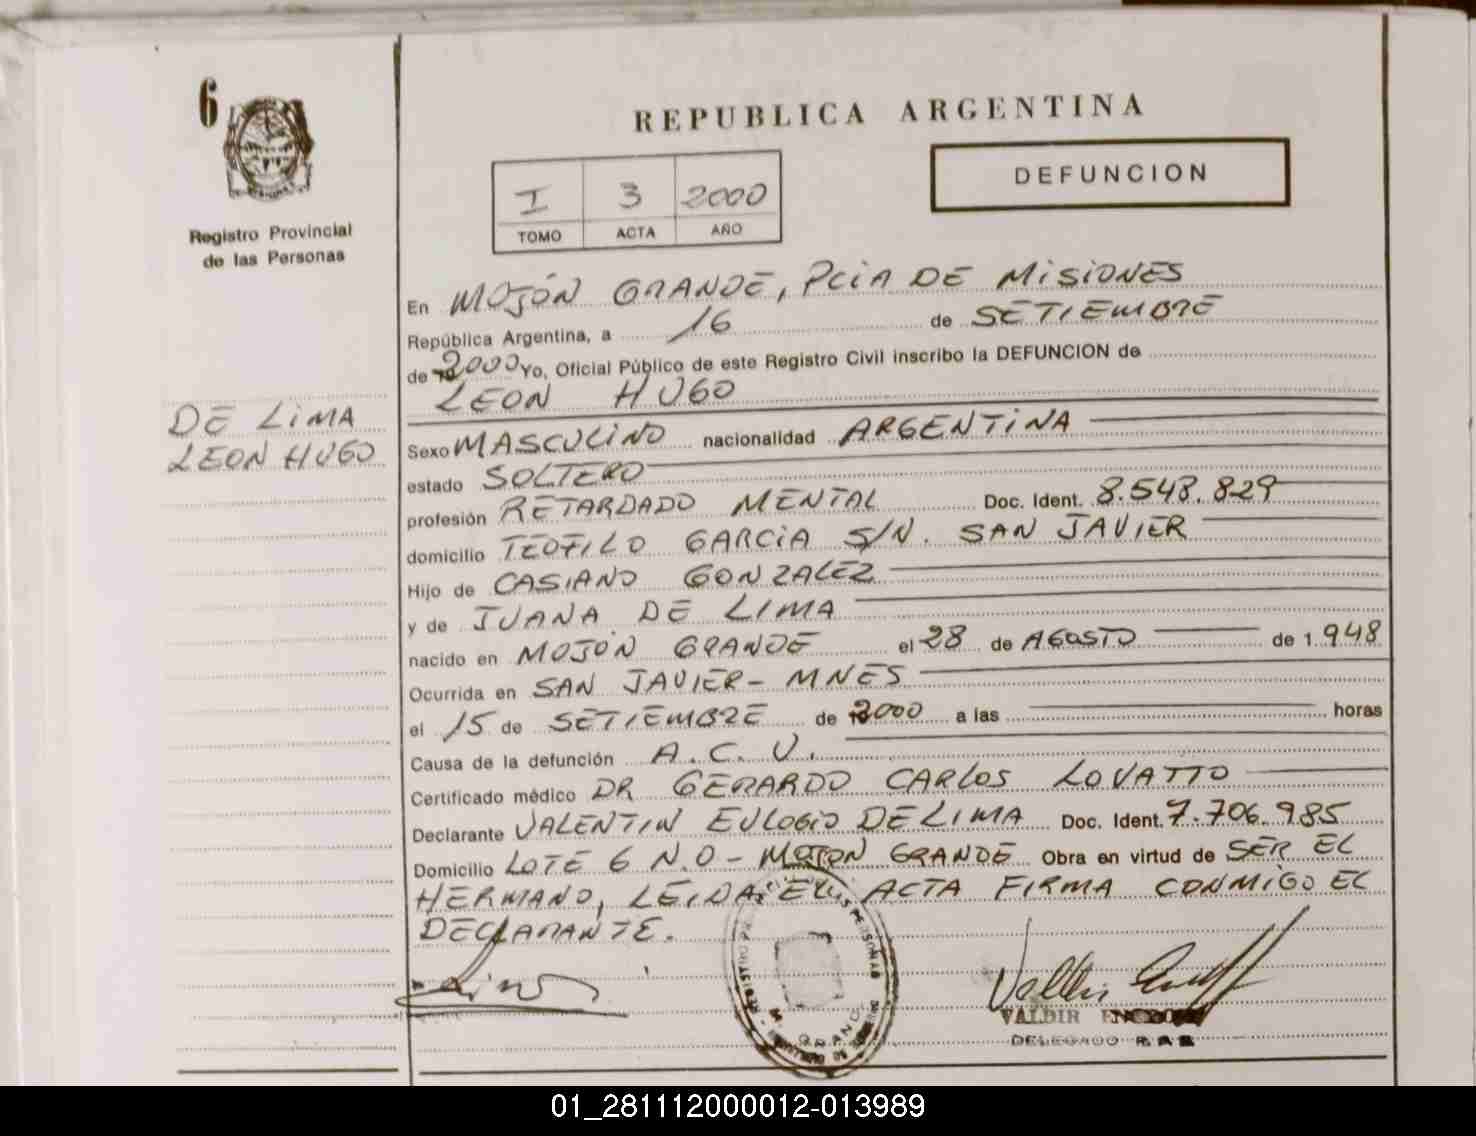 6
REPUBLICA ARGENTINA
DEFUNCION
I 3 2000
TOMO ACTA AÑO
Registro Provincial
de las Personas
En MOJÓN GRANDE, PCiA DE MiSiONES
República Argentina, a 16 de SETIEMBRE
de 2000 Yo, Oficial Público de este Registro Civil inscribo la DEFUNCION de
LEON HUGO
DE LiMA
LEON HUGO
Sexo MASCULINO nacionalidad ARGENTiNA
estado SOLTERO
profesión RETARDADO MENTAL Doc. Ident. 8.548.829
domicilio TEOFILO GARCiA S/N. SAN JAVIER
Hijo de CASIANO GONZALEZ
y de JUANA DE LIMA
nacido en MOJÓN GRANDE el 28 de AGOSTO de 1.948
Ocurrida en SAN JAVIER - MNES
el 15 de SETIEMBRE de 2000 a las horas
Causa de la defunción A.C.V.
Certificado médico DR GERARDO CARLOS LOVATTO
Declarante VALENTIN EULOGiO DE LIMA Doc. Ident. 7.706.985
Domicilio LOTE 6 N.O - MOJON GRANDE Obra en virtud de SER EL
HERMANO, LEIDA EL ACTA FIRMA CONMIGO EL
DECLARANTE.
VALDIR
DELEGADO
01_281112000012-013989